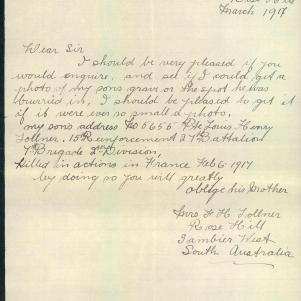 Rose Hill
March 1917
Dear Sir
I should be very pleased if you
would enquire, and see if I could get a
photo of my sons grave or the spot he was
burried in, I should be pleased to get it
if it were ever so small a photo,
my sons address No 5655 Pte Louis Henry
Tollner. 15 Reinforcement 27th Battalion
7th Brigade 2nd Division,
killed in actions in France Feb 6. 1917
by doing so you will greatly
oblige his Mother
Mrs F H Tollner
Rose Hill
Gambier West
South Australia